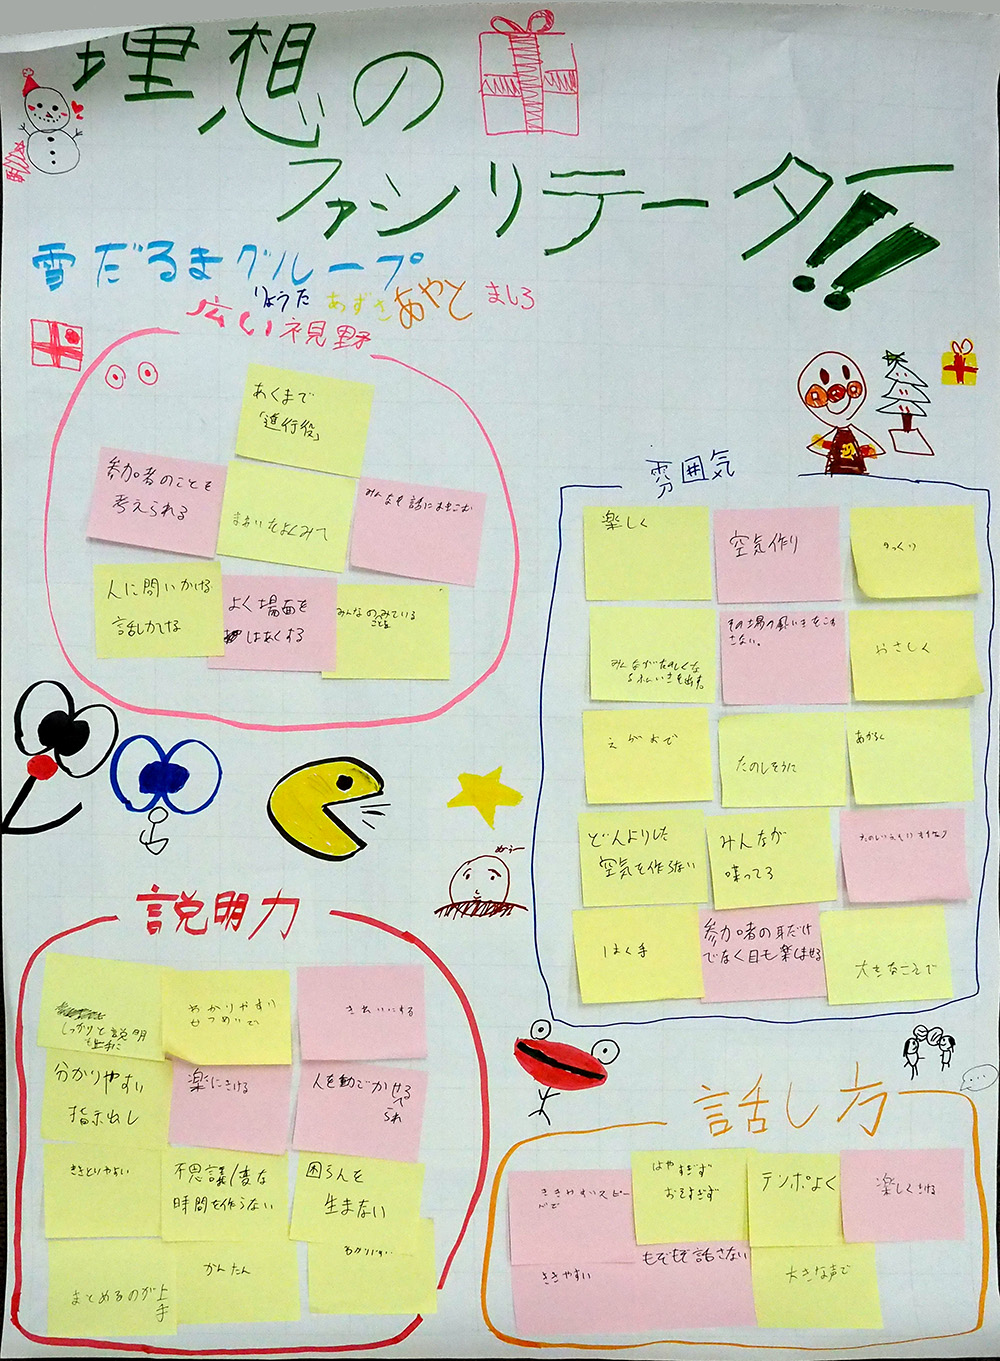 理想の
ファシリテーター!!
雪だるまグループ
りょうた あずさ あやと ましろ
広い視野
あくまで
「進行役」
参加者のことを
考えられる
まわりをよくみて
人に問いかける
話しかける
よく場面を
はあくする
みんなのみている
ことを
雰囲気
楽しく
空気作り
ゆっくり
みんながたのしくな
るふんいきを出す。
その場の
やさしく
えがおで
たのしそうに
あかるく
どんよりした
空気を作らない
みんなが
喋ってる
はく手
参加者の耳だけ
でなく目も楽しませる
大きなこえで
説明力
しっかりと説明
も上手に
わかりやすい
せつめいで
きれいにする
分かりやすい
指示出し
楽にきける
人を動かせる
ききとりやすい
不思議/変な
時間を作らない
困らんを
生まない
まとめるのが上
手
かんたん
わかりやすい
話し方
ききやすいスピー
ドで
はやすぎず
おそすぎず
テンポよく
楽しくきける
ききやすい
もぞもぞ話さない
大きな声で